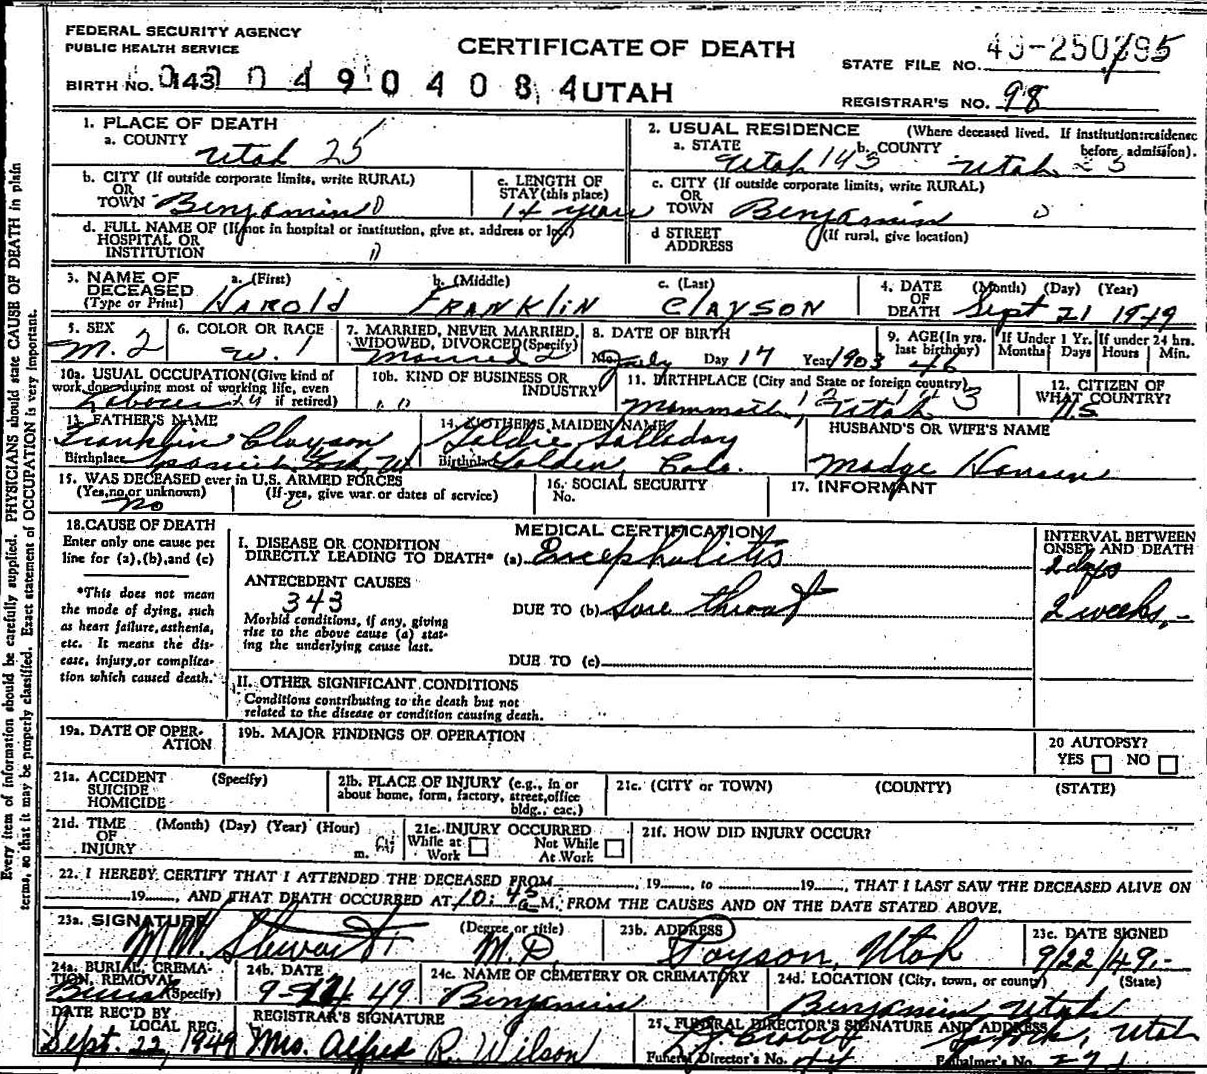 FEDERAL SECURITY AGENCY
PUBLIC HEALTH SERVICE
CERTIFICATE OF DEATH
STATE FILE NO.
BIRTH NO. 143 0 4 9 0 4 0 8 4 UTAH
REGISTRAR'S NO. 98
1. PLACE OF DEATH
a. COUNTY
Utah 25
2. USUAL RESIDENCE (Where deceased lived. If institution: residence before admission).
a. STATE Utah 143 b. COUNTY Utah
b. CITY (If outside corporate limits, write RURAL)
OR
TOWN Benjamin
c. LENGTH OF
STAY (this place)
14 years
c. CITY (If outside corporate limits, write RURAL)
OR
TOWN Benjamin
d. FULL NAME OF (If not in hospital or institution, give st. address or loc.)
HOSPITAL OR
INSTITUTION
d STREET (If rural, give location)
ADDRESS
3. NAME OF DECEASED (Type or Print)
a. (First) b. (Middle) c. (Last)
HAROLD FRANKLIN CLAYSON
4. DATE OF DEATH (Month) (Day) (Year)
Sept 21 1949
5. SEX
M. 2
6. COLOR OR RACE
W. 1
7. MARRIED, NEVER MARRIED,
WIDOWED, DIVORCED (Specify)
Married 2
8. DATE OF BIRTH
Mo. July Day 17 Year 1903
9. AGE (In yrs. last birthday)
46
If Under 1 Yr. Months Days
If under 24 hrs. Hours Min.
10a. USUAL OCCUPATION (Give kind of
work done during most of working life, even
if retired)
Laborer
10b. KIND OF BUSINESS OR
INDUSTRY
11. BIRTHPLACE (City and State or foreign country)
Mammoth, Utah
12. CITIZEN OF
WHAT COUNTRY?
U.S.
13. FATHER'S NAME
Franklin Clayson
Birthplace Spanish Fork, Ut
14. MOTHER'S MAIDEN NAME
Goldie
Birthplace Golden, Colo.
HUSBAND'S OR WIFE'S NAME
Madge Hansen
15. WAS DECEASED ever in U.S. ARMED FORCES
(Yes, no, or unknown) (If yes, give war or dates of service)
No
16. SOCIAL SECURITY
No.
17. INFORMANT
18. CAUSE OF DEATH
Enter only one cause per
line for (a), (b), and (c)
*This does not mean
the mode of dying, such
as heart failure, asthenia,
etc. It means the dis-
ease, injury, or complica-
tion which caused death.
MEDICAL CERTIFICATION
I. DISEASE OR CONDITION
DIRECTLY LEADING TO DEATH* (a) Encephalitis
ANTECEDENT CAUSES
343
Morbid conditions, if any, giving
rise to the above cause (a) stat-
ing the underlying cause last.
DUE TO (b) Sore throat
DUE TO (c)
II. OTHER SIGNIFICANT CONDITIONS
Conditions contributing to the death but not
related to the disease or condition causing death.
INTERVAL BETWEEN
ONSET AND DEATH
2 days
2 weeks.-
19a. DATE OF OPER-
ATION
19b. MAJOR FINDINGS OF OPERATION
20 AUTOPSY?
YES NO
21a. ACCIDENT (Specify)
SUICIDE
HOMICIDE
21b. PLACE OF INJURY (e.g., in or
about home, form, factory, street, office
bldg., eac.)
21c. (CITY or TOWN) (COUNTY) (STATE)
21d. TIME (Month) (Day) (Year) (Hour)
OF
INJURY m.
21e. INJURY OCCURRED
While at Work Not While At Work
21f. HOW DID INJURY OCCUR?
22. I HEREBY CERTIFY THAT I ATTENDED THE DECEASED FROM , 19 , to 19 , THAT I LAST SAW THE DECEASED ALIVE ON
19 , AND THAT DEATH OCCURRED AT 10:45 a M. FROM THE CAUSES AND ON THE DATE STATED ABOVE.
23a. SIGNATURE (Degree or title)
M.W. Stewart M.D.
23b. ADDRESS
Payson, Utah
23c. DATE SIGNED
9/22/49.-
24a. BURIAL, CREMA-
TION, REMOVAL
(Specify)
Burial
24b. DATE
49
24c. NAME OF CEMETERY OR CREMATORY
Benjamin
24d. LOCATION (City, town, or county) (State)
Benjamin Utah
DATE REC'D BY
LOCAL REG.
Sept. 22, 1949
REGISTRAR'S SIGNATURE
Mrs. Alfred R. Wilson
25. FUNERAL DIRECTOR'S SIGNATURE AND ADDRESS
Utah
Funeral Director's No. 44 Embalmer's No. 271
Every item of information should be carefully supplied. PHYSICIANS should state CAUSE OF DEATH in plain
terms, so that it may be properly classified. Exact statement of OCCUPATION is very important.